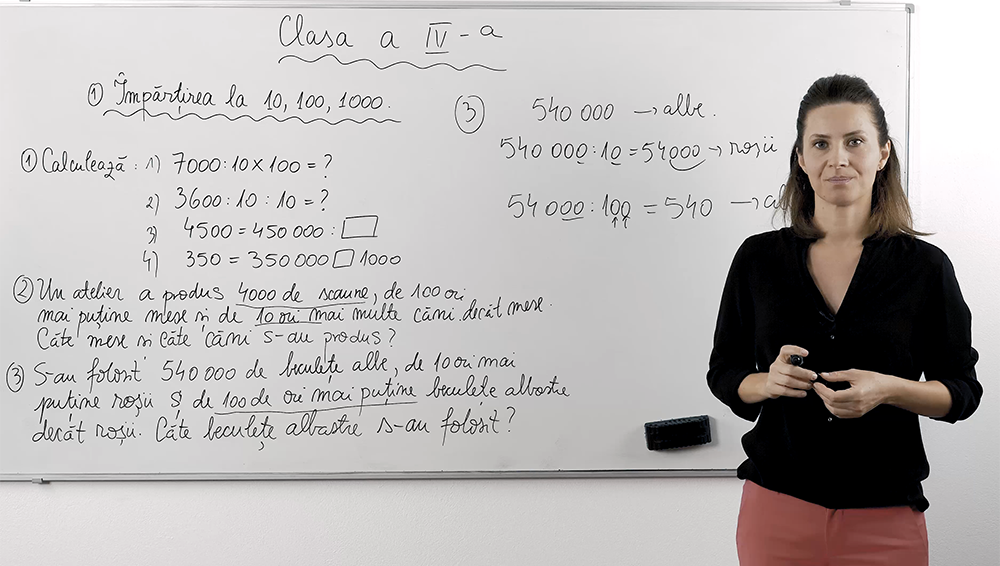 Clasa a IV-a
① Împărțirea la 10, 100, 1000.
① Calculează: 1) 7000:10x100 = ?
2) 3600:10:10 = ?
3) 4500 = 450 000 : □
4) 350 = 350 000 □ 1000
② Un atelier a produs 4000 de scaune, de 100 ori
mai puține mese și de 10 ori mai multe căni decât mese.
Câte mese și câte căni s-au produs?
③ S-au folosit 540 000 de beculețe albe, de 10 ori mai
puține roșii și de 100 de ori mai puține beculețe albastre
decât roșii. Câte beculețe albastre s-au folosit?
③ 540 000 → albe.
540 000 : 10 = 54000 → roșii
54 000 : 100 = 540 →